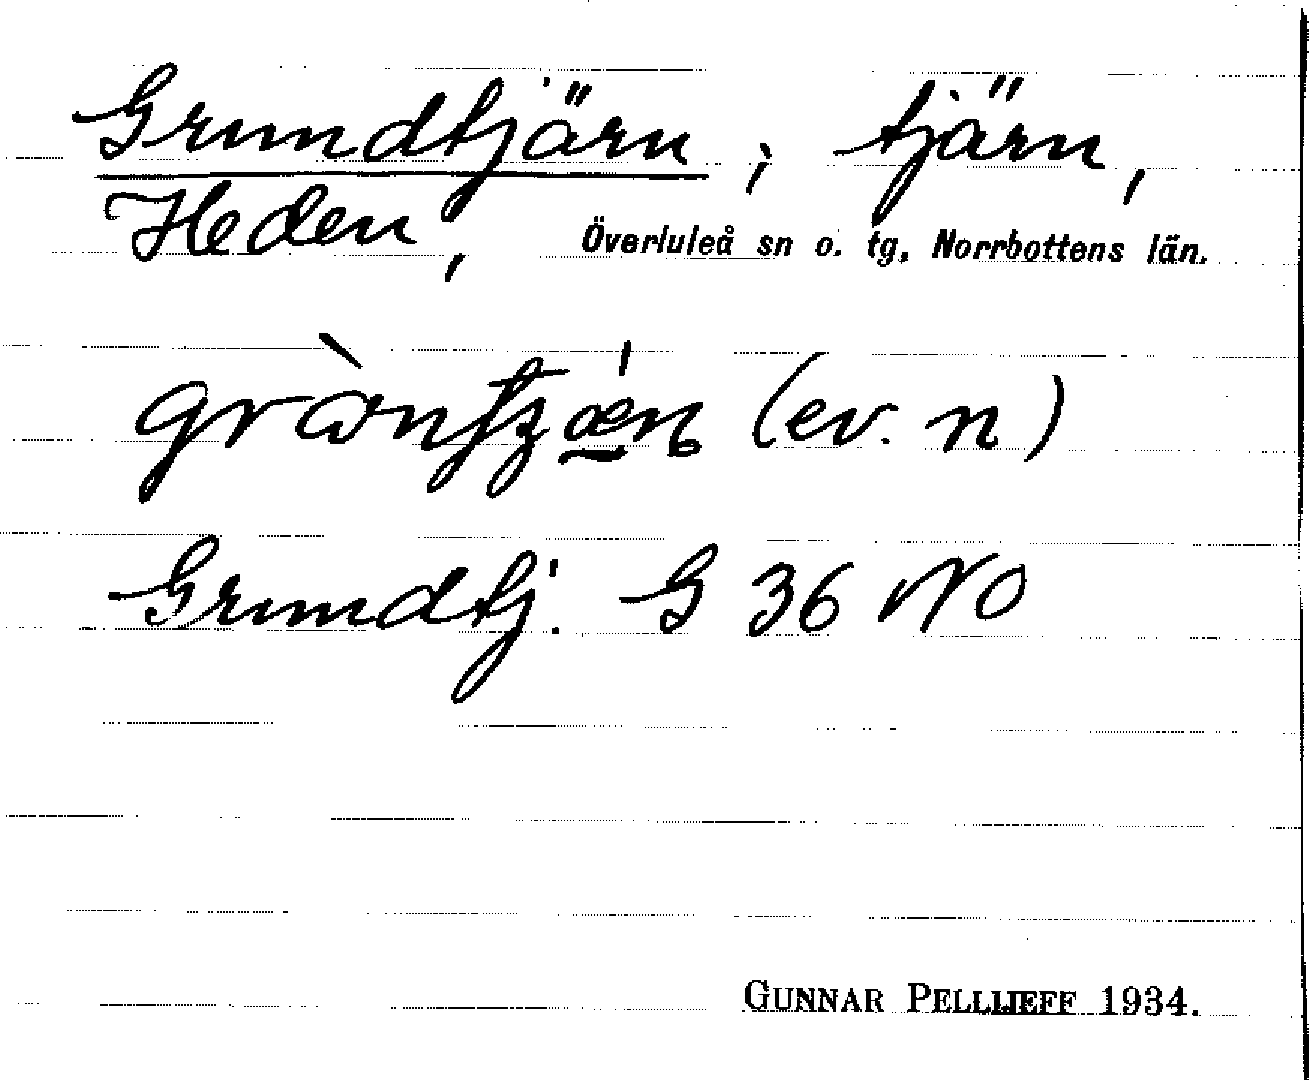 Grundtjärn; tjärn,
Heden, Överluleå sn o. tg, Norrbottens län.
(ev. n)
Grundtj. G 36 NO
GUNNAR PELLIJEFF 1934.